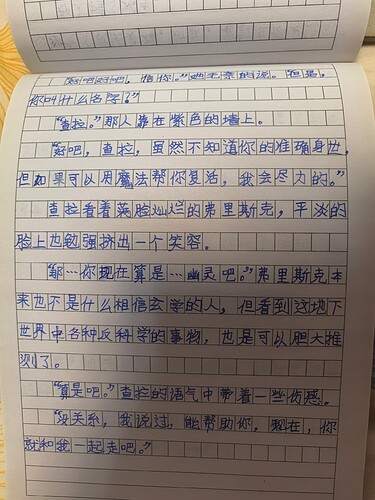 "好吧好吧，信你。"她无奈的说。"但是，
你叫什么名字？"
"查拉。"那人靠在紫色的墙上。
"好吧，查拉，虽然不知道你的准确身世，
但如果可以用魔法帮你复活，我会尽力的。"
查拉看着满脸灿烂的弗里斯克，平淡的
脸上也勉强挤出一个笑容。
"那…你现在算是…幽灵吧。"弗里斯克本
来也不是什么相信玄学的人，但看到这地下
世界中各种反科学的事物，也是可以胆大推
测了。
"算是吧。"查拉的语气中带着一些伤感。
"没关系，我说过，能帮助你，现在，你
就和我一起走吧。"